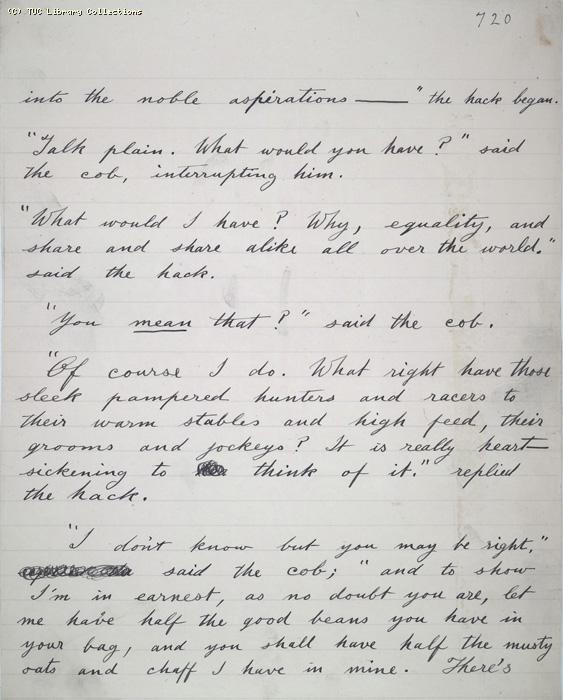 (C) TUC Library Collections
720
into the noble aspirations —— " the hack began.
"Talk plain. What would you have?" said
the cob, interrupting him.
"What would I have? Why, equality, and
share and share alike all over the world."
said the hack.
"You mean that?" said the cob.
"Of course I do. What right have those
sleek pampered hunters and racers to
their warm stables and high feed, their
grooms and jockeys? It is really heart-
sickening to think of it." replied
the hack.
"I don't know but you may be right,"
said the cob; "and to show
I'm in earnest, as no doubt you are, let
me have half the good beans you have in
your bag, and you shall have half the musty
oats and chaff I have in mine. There's